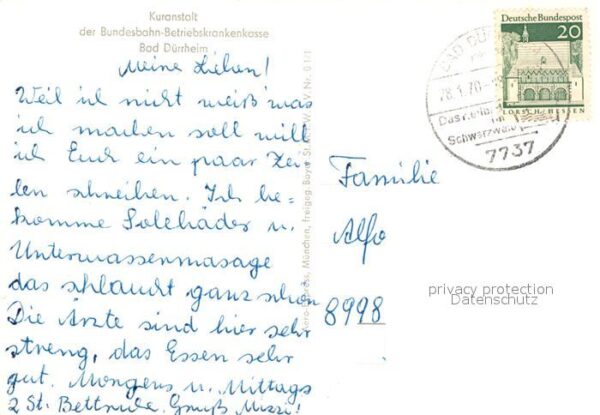 Kuranstalt
der Bundesbahn-Betriebskrankenkasse
Bad Dürrheim
Meine Lieben!
Weil ich nicht weiß was
ich machen soll will
ich Euch ein paar Zei-
len schreiben. Ich be=
komme Solebäder u.
Unterwassenmasage
das schlaucht ganz schön
Die Ärzte sind hier sehr
streng, das Essen sehr
gut. Morgens u. Mittags
2 St. Bettruhe. Gruß Mizzi!
Aero-Express, München, freigeg. Bayer. St. f. W. u. V. Nr.
Deutsche Bundespost
20
LORSCH/HESSEN
BAD DÜ
28.1.70
Schwarzwald
7737
Familie
Alfo
8998
privacy protection
Datenschutz